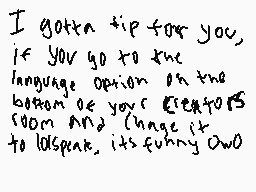 I gotta tip for you,
if you go to the
language option on the
bottom of your creators
room and change it
to lolspeak, its funny OwO